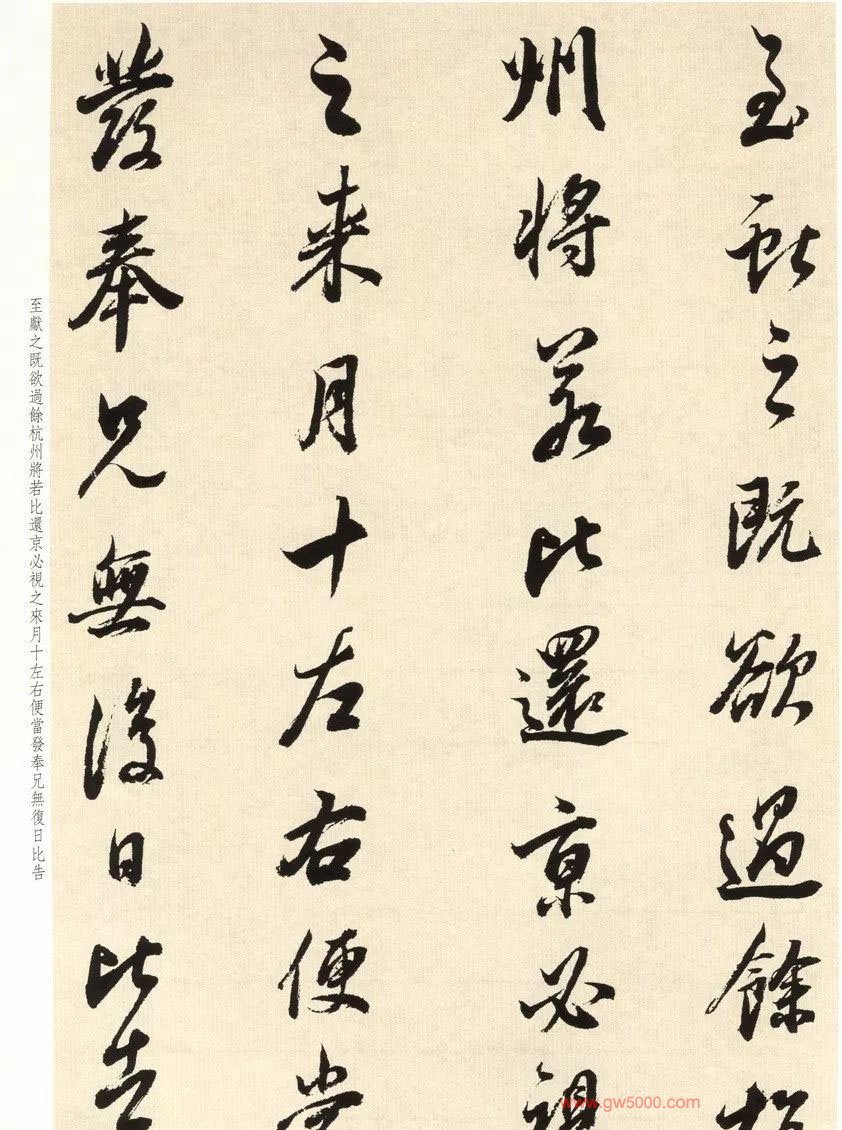 至獻之既欲過餘杭
州將若比還京必視
之來月十左右便當
發奉兄無復日比告
至獻之既欲過餘杭州將若比還京必視之來月十左右便當發奉兄無復日比告
www.gw5000.com